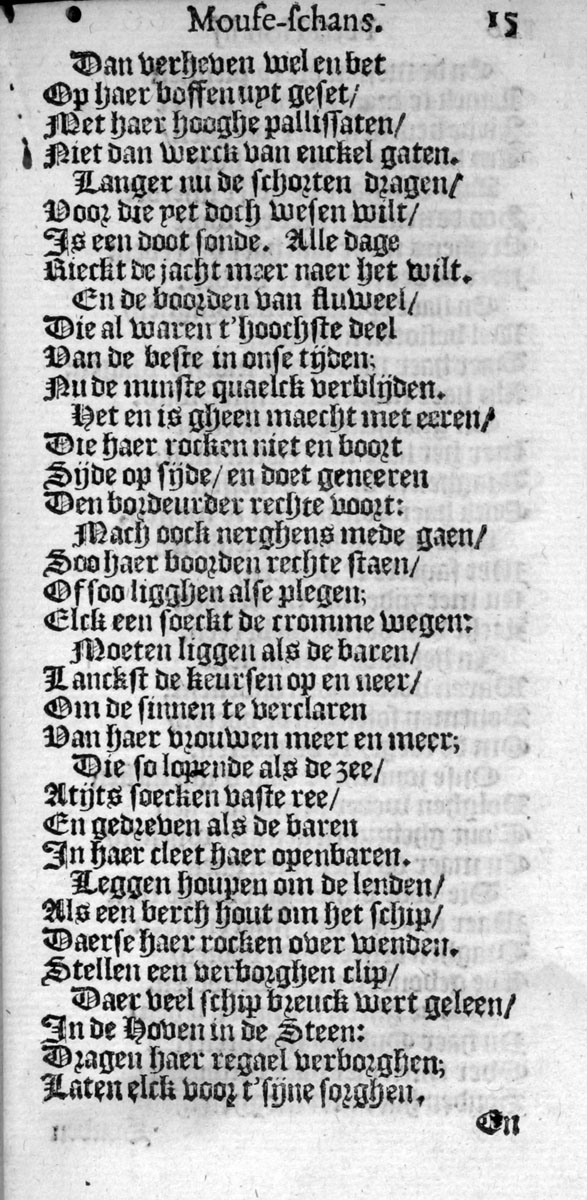 Mouse-schans. 15
Dan verheven wel en bet
Op haer boffen uyt geset/
Met haer hooghe pallissaten/
Niet dan werck van enckel gaten.
Langer nu de schorten dragen/
Voor die yet doch wesen wilt/
Is een doot sonde. Alle dage
Rieckt de jacht meer naer het wilt.
En de boorden van fluweel/
Die al waren t'hoochste deel
Van de beste in onse tijden;
Nu de minste quaelck verblijden.
Het en is gheen maecht met eeren/
Die haer rocken niet en boort
Sijde op sijde/ en doet geneeren
Den bordeurder rechte voort:
Mach oock nerghens mede gaen/
Soo haer boorden rechte staen/
Of soo ligghen alse plegen;
Elck een soeckt de cromme wegen:
Moeten liggen als de baren/
Lanckst de keursen op en neer/
Om de sinnen te verclaren
Van haer vrouwen meer en meer;
Die so lopende als de zee/
Atijts soecken vaste ree/
En gedreven als de baren
In haer cleet haer openbaren.
Leggen houpen om de lenden/
Als een berch hout om het schip/
Daerse haer rocken over wenden.
Stellen een verborghen clip/
Daer veel schip breuck wert geleen/
In de Hoven in de Steen:
Dragen haer regael verborghen;
Laten elck voor t'sijne sorghen.
En